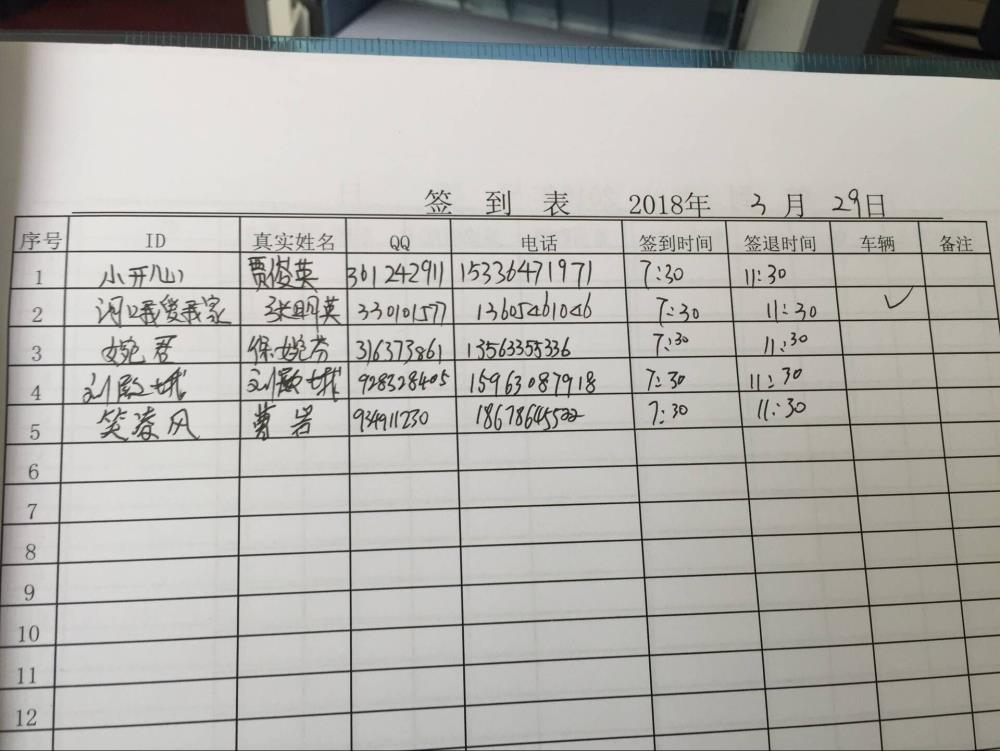 签 到 表 2018年 3 月 29日
序号 ID 真实姓名 QQ 电话 签到时间 签退时间 车辆 备注
1 小开心 贾俊英 361242911 15336471971 7:30 11:30
2 河口我爱我家 张明英 330101577 13605461046 7:30 11:30 ✓
3 婉君 徐婉芬 316373861 13563355336 7:30 11:30
4 刘殿城 刘殿城 928328405 15963087918 7:30 11:30
5 笑凌风 曹岩 934911230 18678645522 7:30 11:30
6
7
8
9
10
11
12